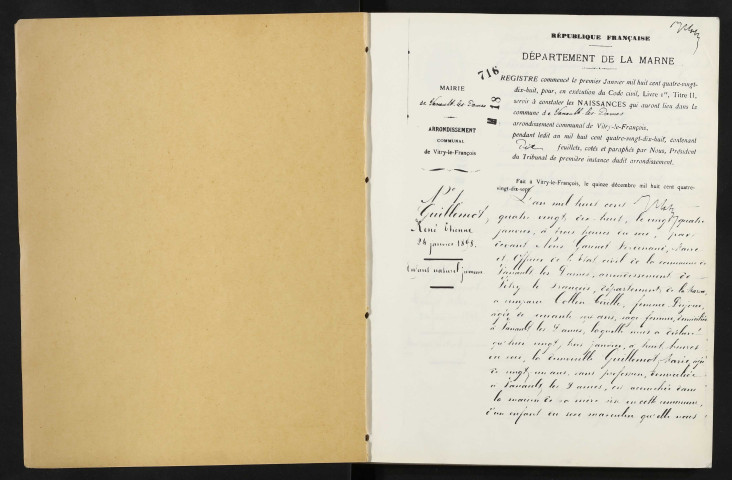 RÉPUBLIQUE FRANÇAISE
DÉPARTEMENT DE LA MARNE
716
M 18
MAIRIE
de Vanault-les-Dames
ARRONDISSEMENT
COMMUNAL
de Vitry-le-François
REGISTRE commencé le premier Janvier mil huit cent quatre-vingt-
dix-huit, pour, en exécution du Code civil, Livre 1er, Titre II,
servir à constater les NAISSANCES qui auront lieu dans la
commune de Vanault-les-Dames
arrondissement communal de Vitry-le-François,
pendant ledit an mil huit cent quatre-vingt-dix-huit, contenant
Dix feuillets, cotés et paraphés par Nous, Président
du Tribunal de première instance dudit arrondissement.
Fait à Vitry-le-François, le quinze décembre mil huit cent quatre-
vingt-dix-sept
N° 1
Guillemot,
René Etienne
24 janvier
Enfant naturel
L'an mil huit cent
quatre vingt dix huit, le vingt quatre
janvier, à trois heures du soir, par
devant Nous
et officier de l'Etat civil de la commune de
Vanault les Dames, arrondissement de
Vitry le François, département de la Marne,
a comparu femme
ans, sage femme, domiciliée
à Vanault les Dames, laquelle nous a déclaré
que hier vingt trois janvier, à huit heures
du soir, la demoiselle Guillemot, Marie, âgée
de vingt un ans, sans profession, domiciliée
à Vanault les Dames, est accouchée dans
la maison de sa mère sise en cette commune,
d'un enfant du sexe masculin qu'elle nous